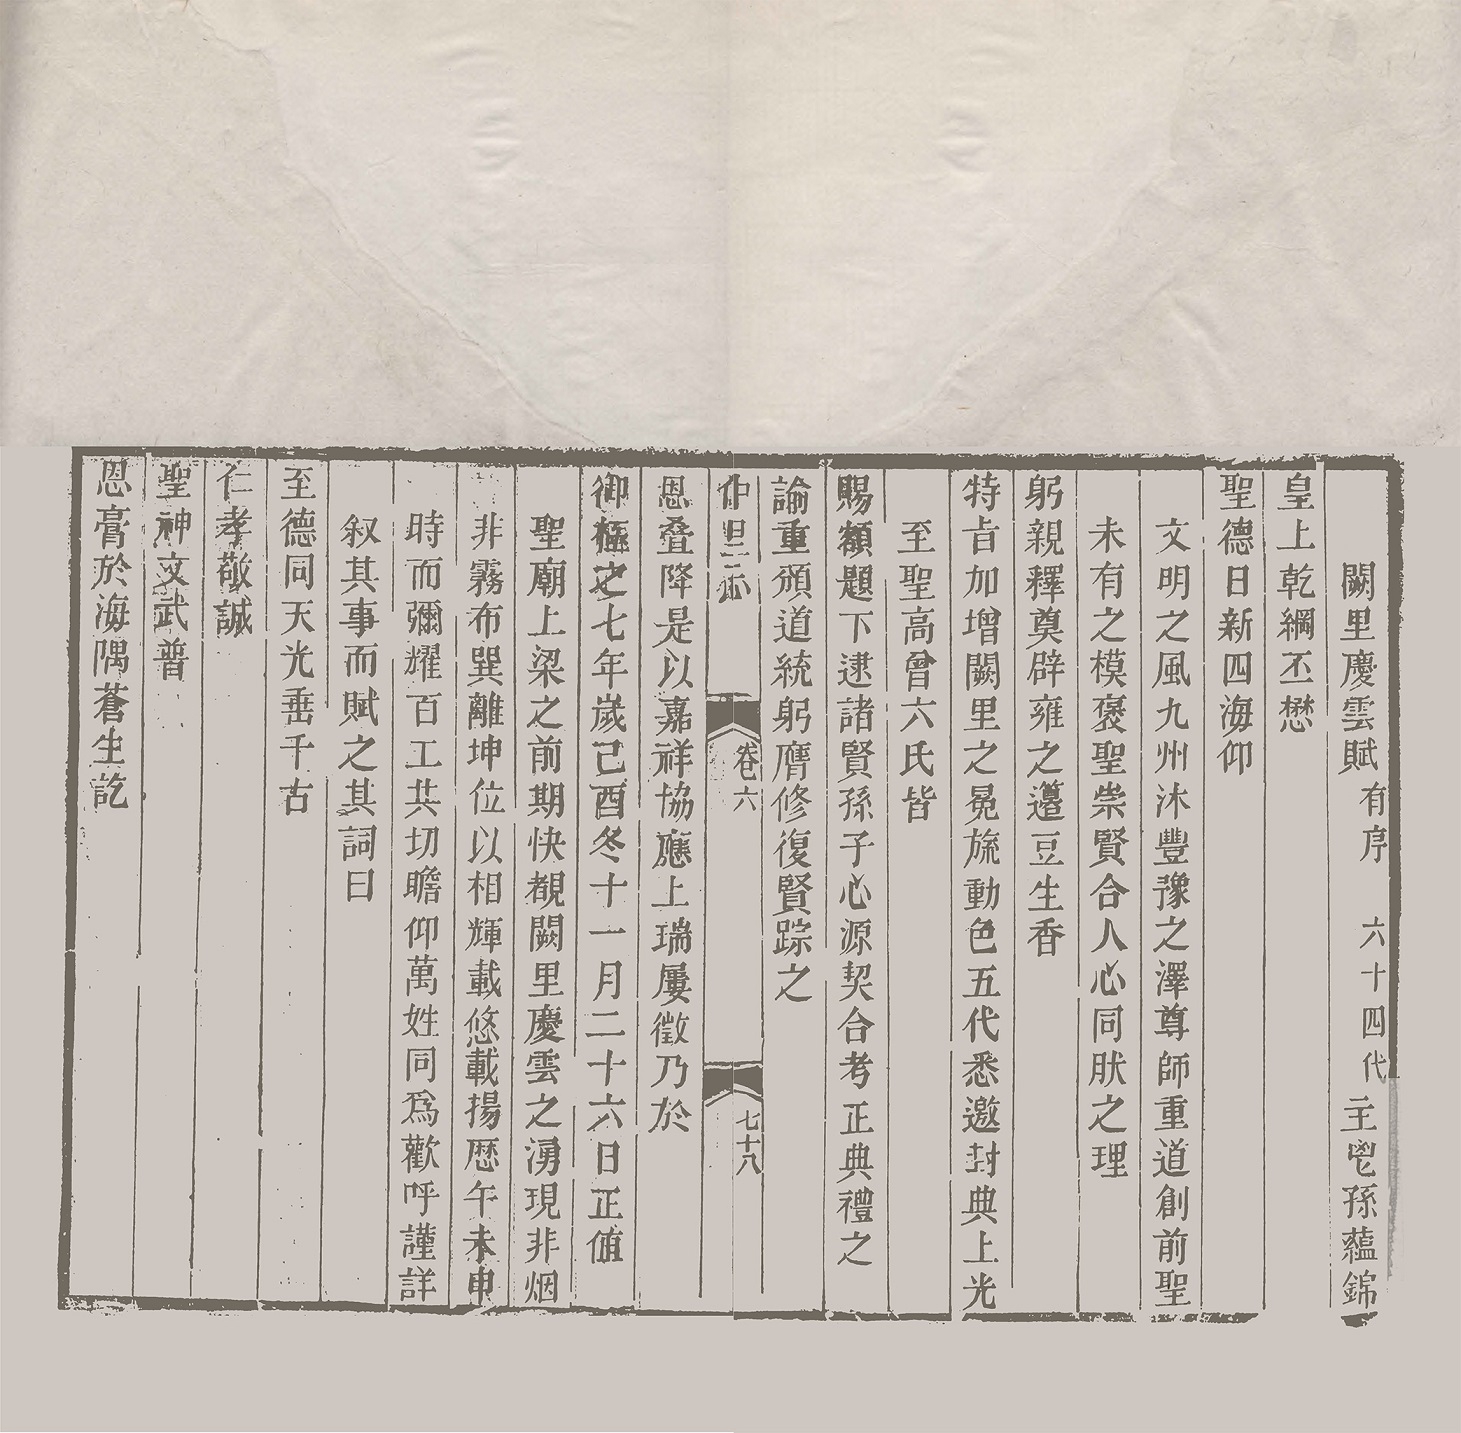 闕里慶雲賦有序 六十四代主鬯孫蘊錦
皇上乾綱丕懋
聖德日新四海仰
文明之風九州沐豐豫之澤尊師重道創前聖
未有之模褒聖崇賢合人心同肰之理
躬親釋奠辟雍之籩豆生香
特旨加增闕里之冕旒動色五代悉邀封典上光
至聖高曾六氏皆
賜額題下逮諸賢孫子心源契合考正典禮之
諭重頒道統躬膺修復賢踪之
恩叠降是以嘉祥協應上瑞屢徵乃於
御極之七年歲己酉冬十一月二十六日正値
聖廟上梁之前期快覩闕里慶雲之湧現非烟
非霧布巽離坤位以相輝載悠載揚歷午未申
時而彌耀百工共切瞻仰萬姓同爲歡呼謹詳
叙其事而賦之其詞曰
至德同天光垂千古
仁孝敬誠
聖神文武普
恩膏於海隅蒼生訖
卷六
七十八